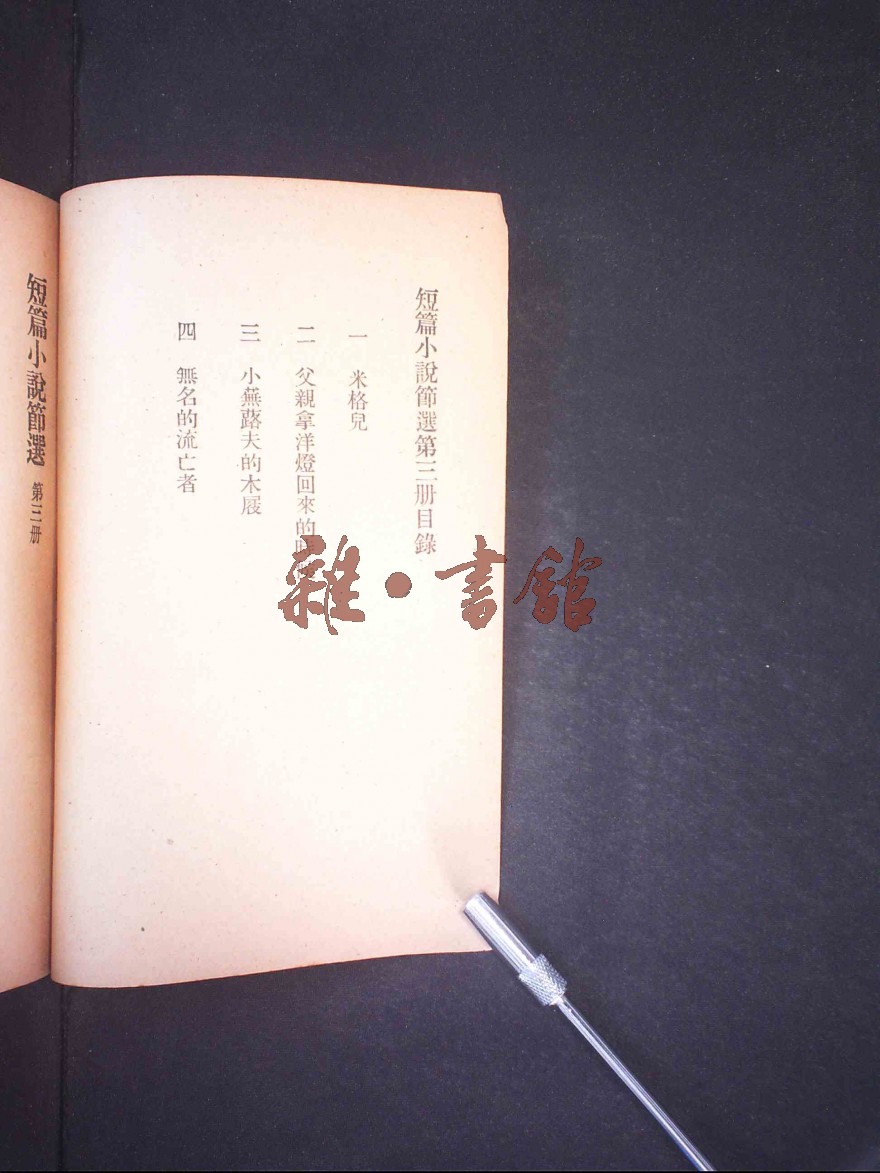 短篇小說節選第三册目錄
一 米格兒
二 父親拿洋燈回來的
三 小蕪蕗夫的木屐
四 無名的流亡者
短篇小說節選 第三册
雜•書館